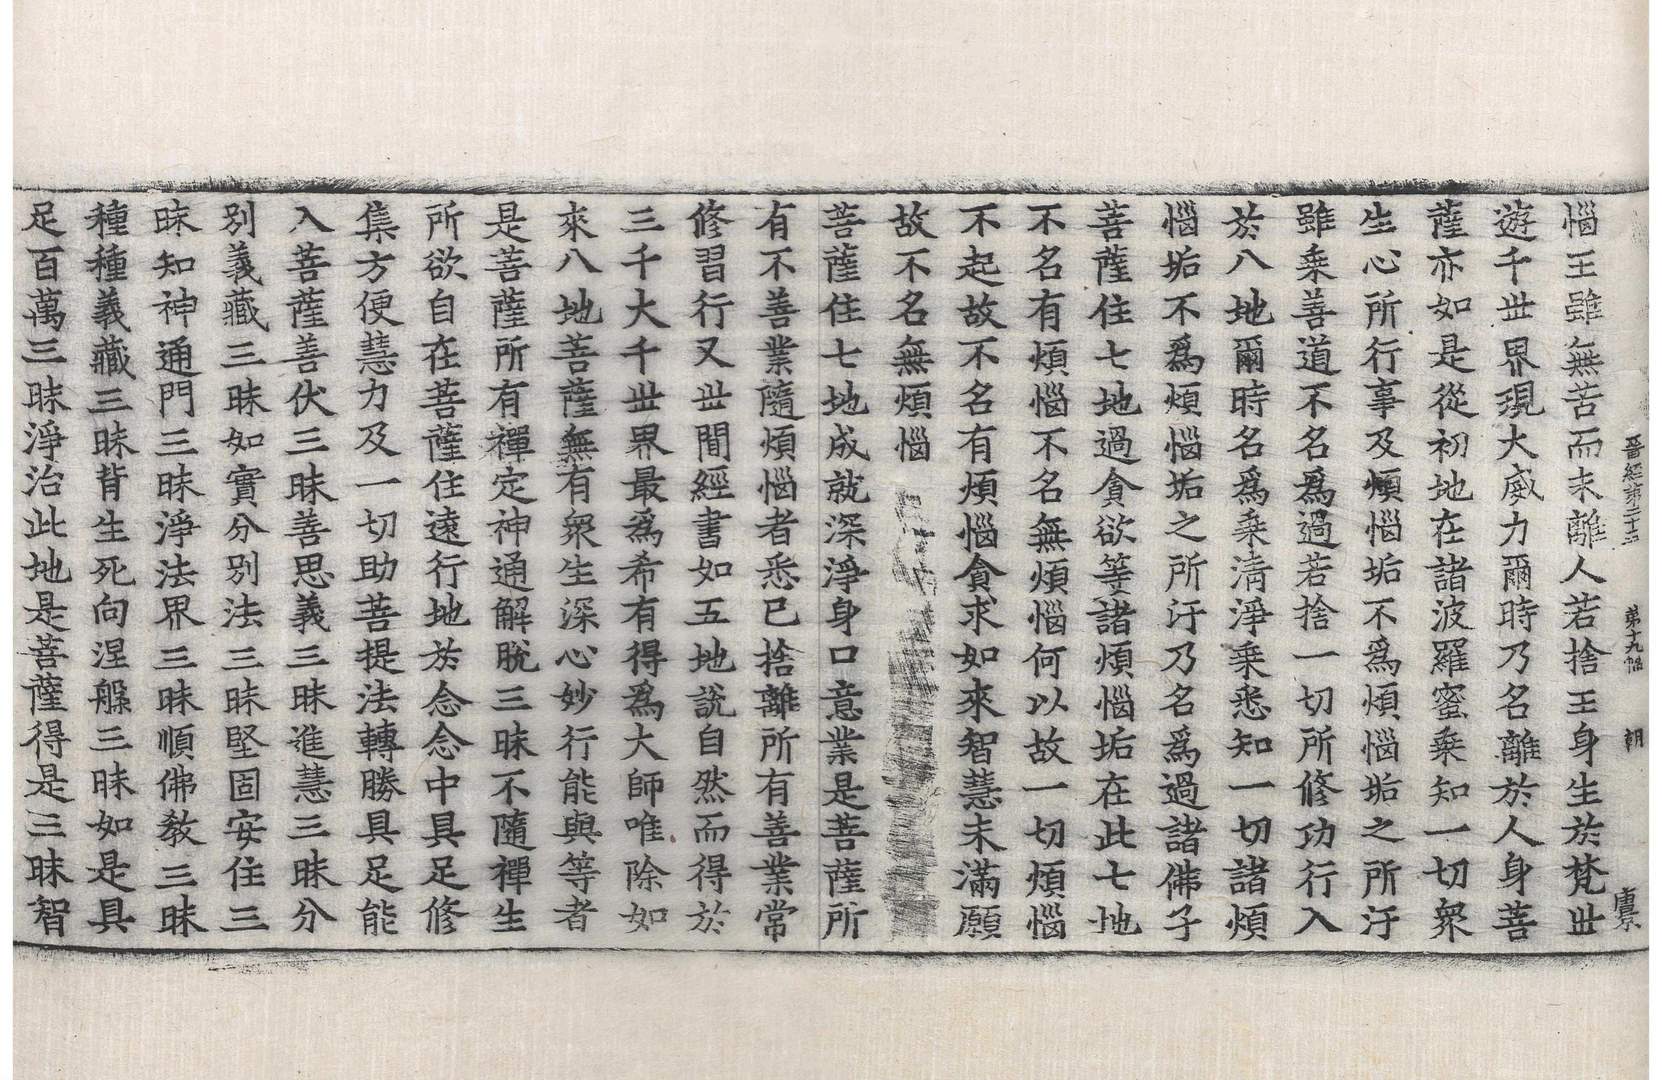 晉經第二十五 第十九帖 朝 景
惱王雖無苦而未離人若捨王身生於梵世
遊千世界現大威力爾時乃名離於人身菩
薩亦如是從初地在諸波羅蜜乘知一切衆
生心所行事及煩惱垢不爲煩惱垢之所汙
雖乘善道不名爲過若捨一切所修功行入
於八地爾時名爲乘清淨乘悉知一切諸煩
惱垢不爲煩惱垢之所汙乃名爲過諸佛子
菩薩住七地過貪欲等諸煩惱垢在此七地
不名有煩惱不名無煩惱何以故一切煩惱
不起故不名有煩惱貪求如來智慧未滿願
故不名無煩惱
菩薩住七地成就深淨身口意業是菩薩所
有不善業隨煩惱者悉已捨離所有善業常
修習行又世間經書如五地說自然而得於
三千大千世界最爲希有得爲大師唯除如
來八地菩薩無有衆生深心妙行能與等者
是菩薩所有禪定神通解脫三昧不隨禪生
所欲自在菩薩住遠行地於念念中具足修
集方便慧力及一切助菩提法轉勝具足能
入菩薩善伏三昧善思義三昧進慧三昧分
別義藏三昧如實分別法三昧堅固安住三
昧知神通門三昧淨法界三昧順佛教三昧
種種義藏三昧背生死向涅槃三昧如是具
足百萬三昧淨治此地是菩薩得是三昧智